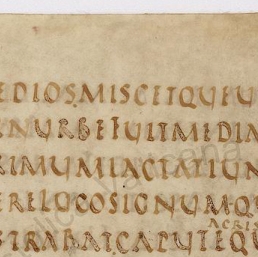 EDIOSMISCETQUEU
INURBEFUITMEDIA
RIMUMIACTATIUN
ERELOCOSIGNUMQU
ACRIS
STRABATCAPUTEQU